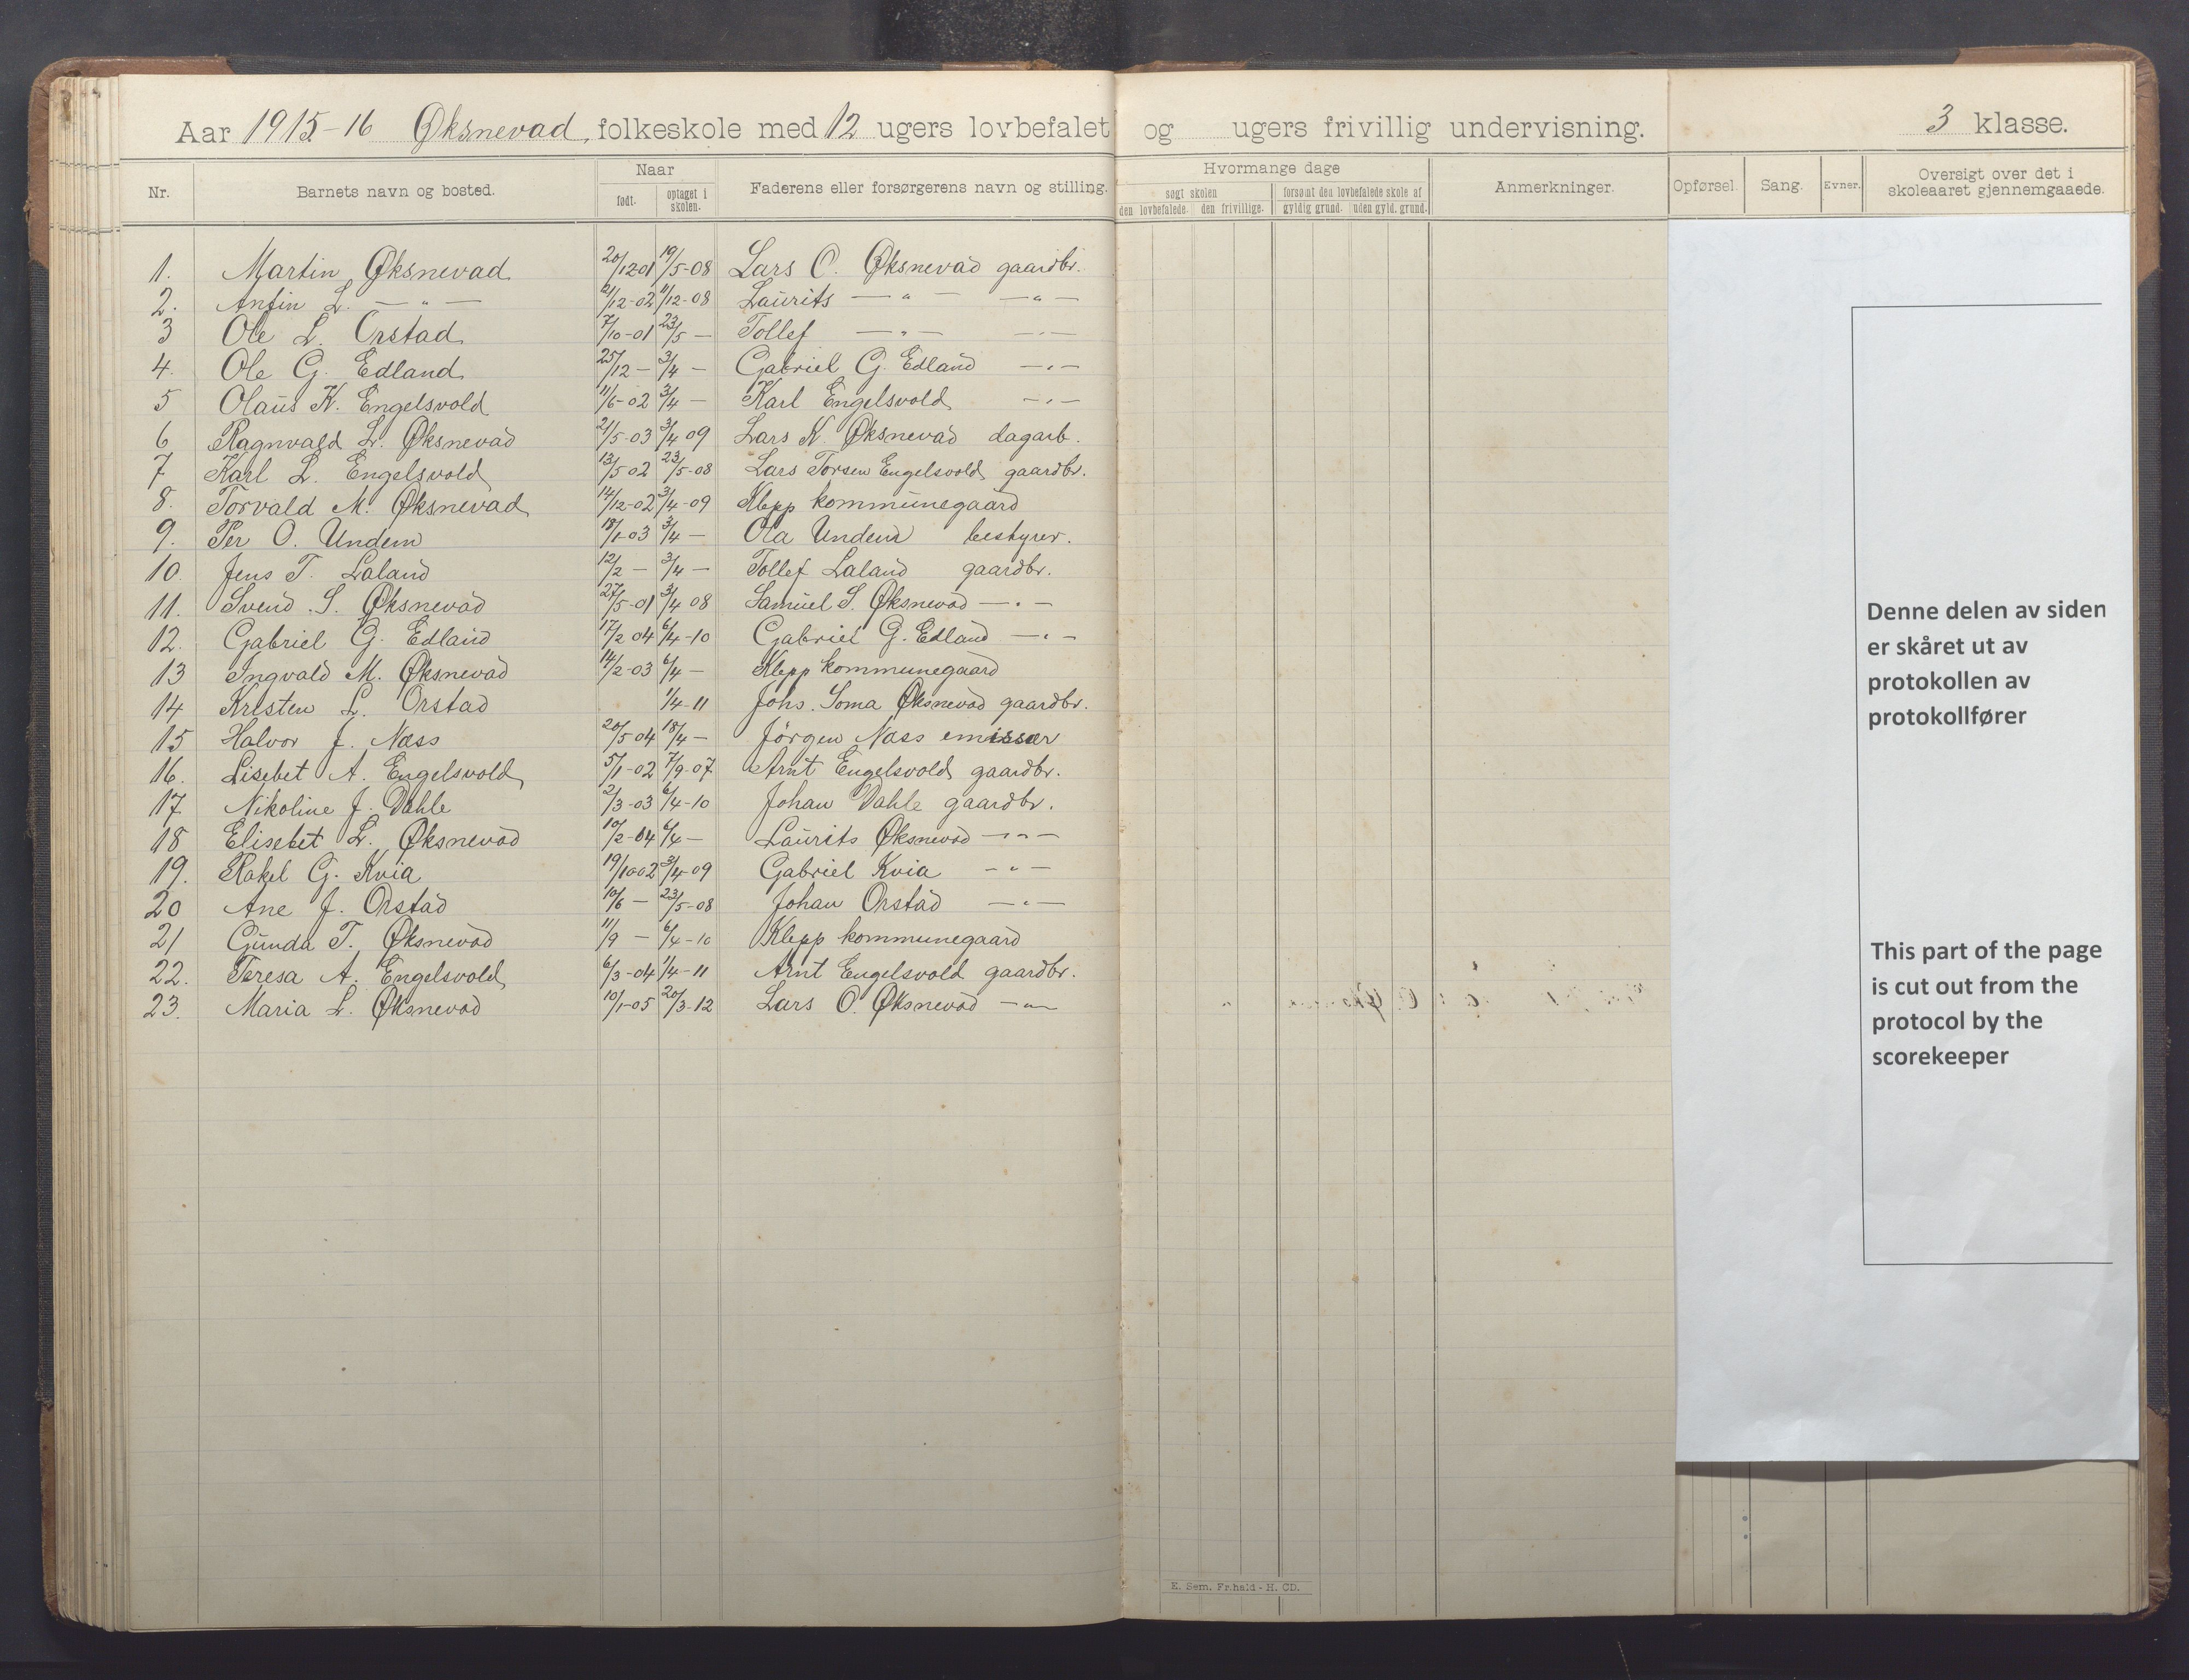 Aar 1915-16 Øksnevad, folkeskole med 12 ugers lovbefalet og ugers frivillig undervisning. 3 klasse.
Nr. Barnets navn og bosted. Naar Faderens eller forsørgerens navn og stilling. Hvormange dage Anmerkninger. Opførsel. Sang. Evner. Oversigt over det i skoleaaret gjennemgaaede.
født. optaget i skolen. søgt skolen forsømt den lovbefalede skole af
den lovbefalede. den frivillige. gyldig grund. uden gyld. grund.
1. Martin Øksnevad 20/12-01 19/5-08 Lars O. Øksnevad gaardbr.
2. Anfin L. — " — 21/12-02 11/12-08 Laurits — " — — " —
3 Ole L. Orstad 7/10-01 23/5 — Tollef — " — — " —
4. Ole G. Edland 25/12 — 3/4 — Gabriel G. Edland — " —
5 Olaus K. Engelsvold 11/6-02 3/4 — Karl Engelsvold — " —
6 Ragnvald L. Øksnevad 21/5-03 3/4 09 Lars N. Øksnevad dagarb.
7 Karl L. Engelsvold 13/5 02 23/5-08 Lars Torsen Engelsvold gaardbr.
8. Torvald M. Øksnevad 14/12-02 3/4-09 Klepp kommunegaard
9. Per O. Undem 18/1-03 3/4 — Ola Undem bestyrer.
10. Jens T. Laland 12/2 — 3/4 — Tollef Laland gaardbr.
11. Svend S. Øksnevad 27/5-01 3/4 08 Samuel S. Øksnevad — " —
12. Gabriel G. Edland 17/2 04 6/4-10 Gabriel G. Edland — " —
13 Ingvald M. Øksnevad 14/2-03 6/4 — Klepp kommunegaard
14 Kristen L. Orstad 1/4-11 Johs. Soma Øksnevad gaardbr.
15 Halvor J. Næss 20/5 04 18/4 — Jörgen Næss emissær
16. Lisebet A. Engelsvold 5/1-02 7/9-07 Arnt Engelsvold gaardbr.
17 Nikoline J. Dahle 2/3-03 6/4-10 Johan Dahle gaardbr.
18 Elisebet L. Øksnevad 10/2-04 6/4 — Laurits Øksnevad — " —
19. Rakel G. Kvia 19/10-02 3/4 09 Gabriel Kvia — " —
20 Ane J. Orstad 10/6 — 23/5-08 Johan Orstad — " —
21 Gunda T. Øksnevad 11/9 — 6/4-10 Klepp kommunegaard
22. Teresa A. Engelsvold 6/3-04 1/4-11 Arnt Engelsvold gaardbr.
23. Maria L. Øksnevad 10/1-05 20/3-12 Lars O. Øksnevad — " —
Denne delen av siden
er skåret ut av
protokollen av
protokollfører
This part of the page
is cut out from the
protocol by the
scorekeeper